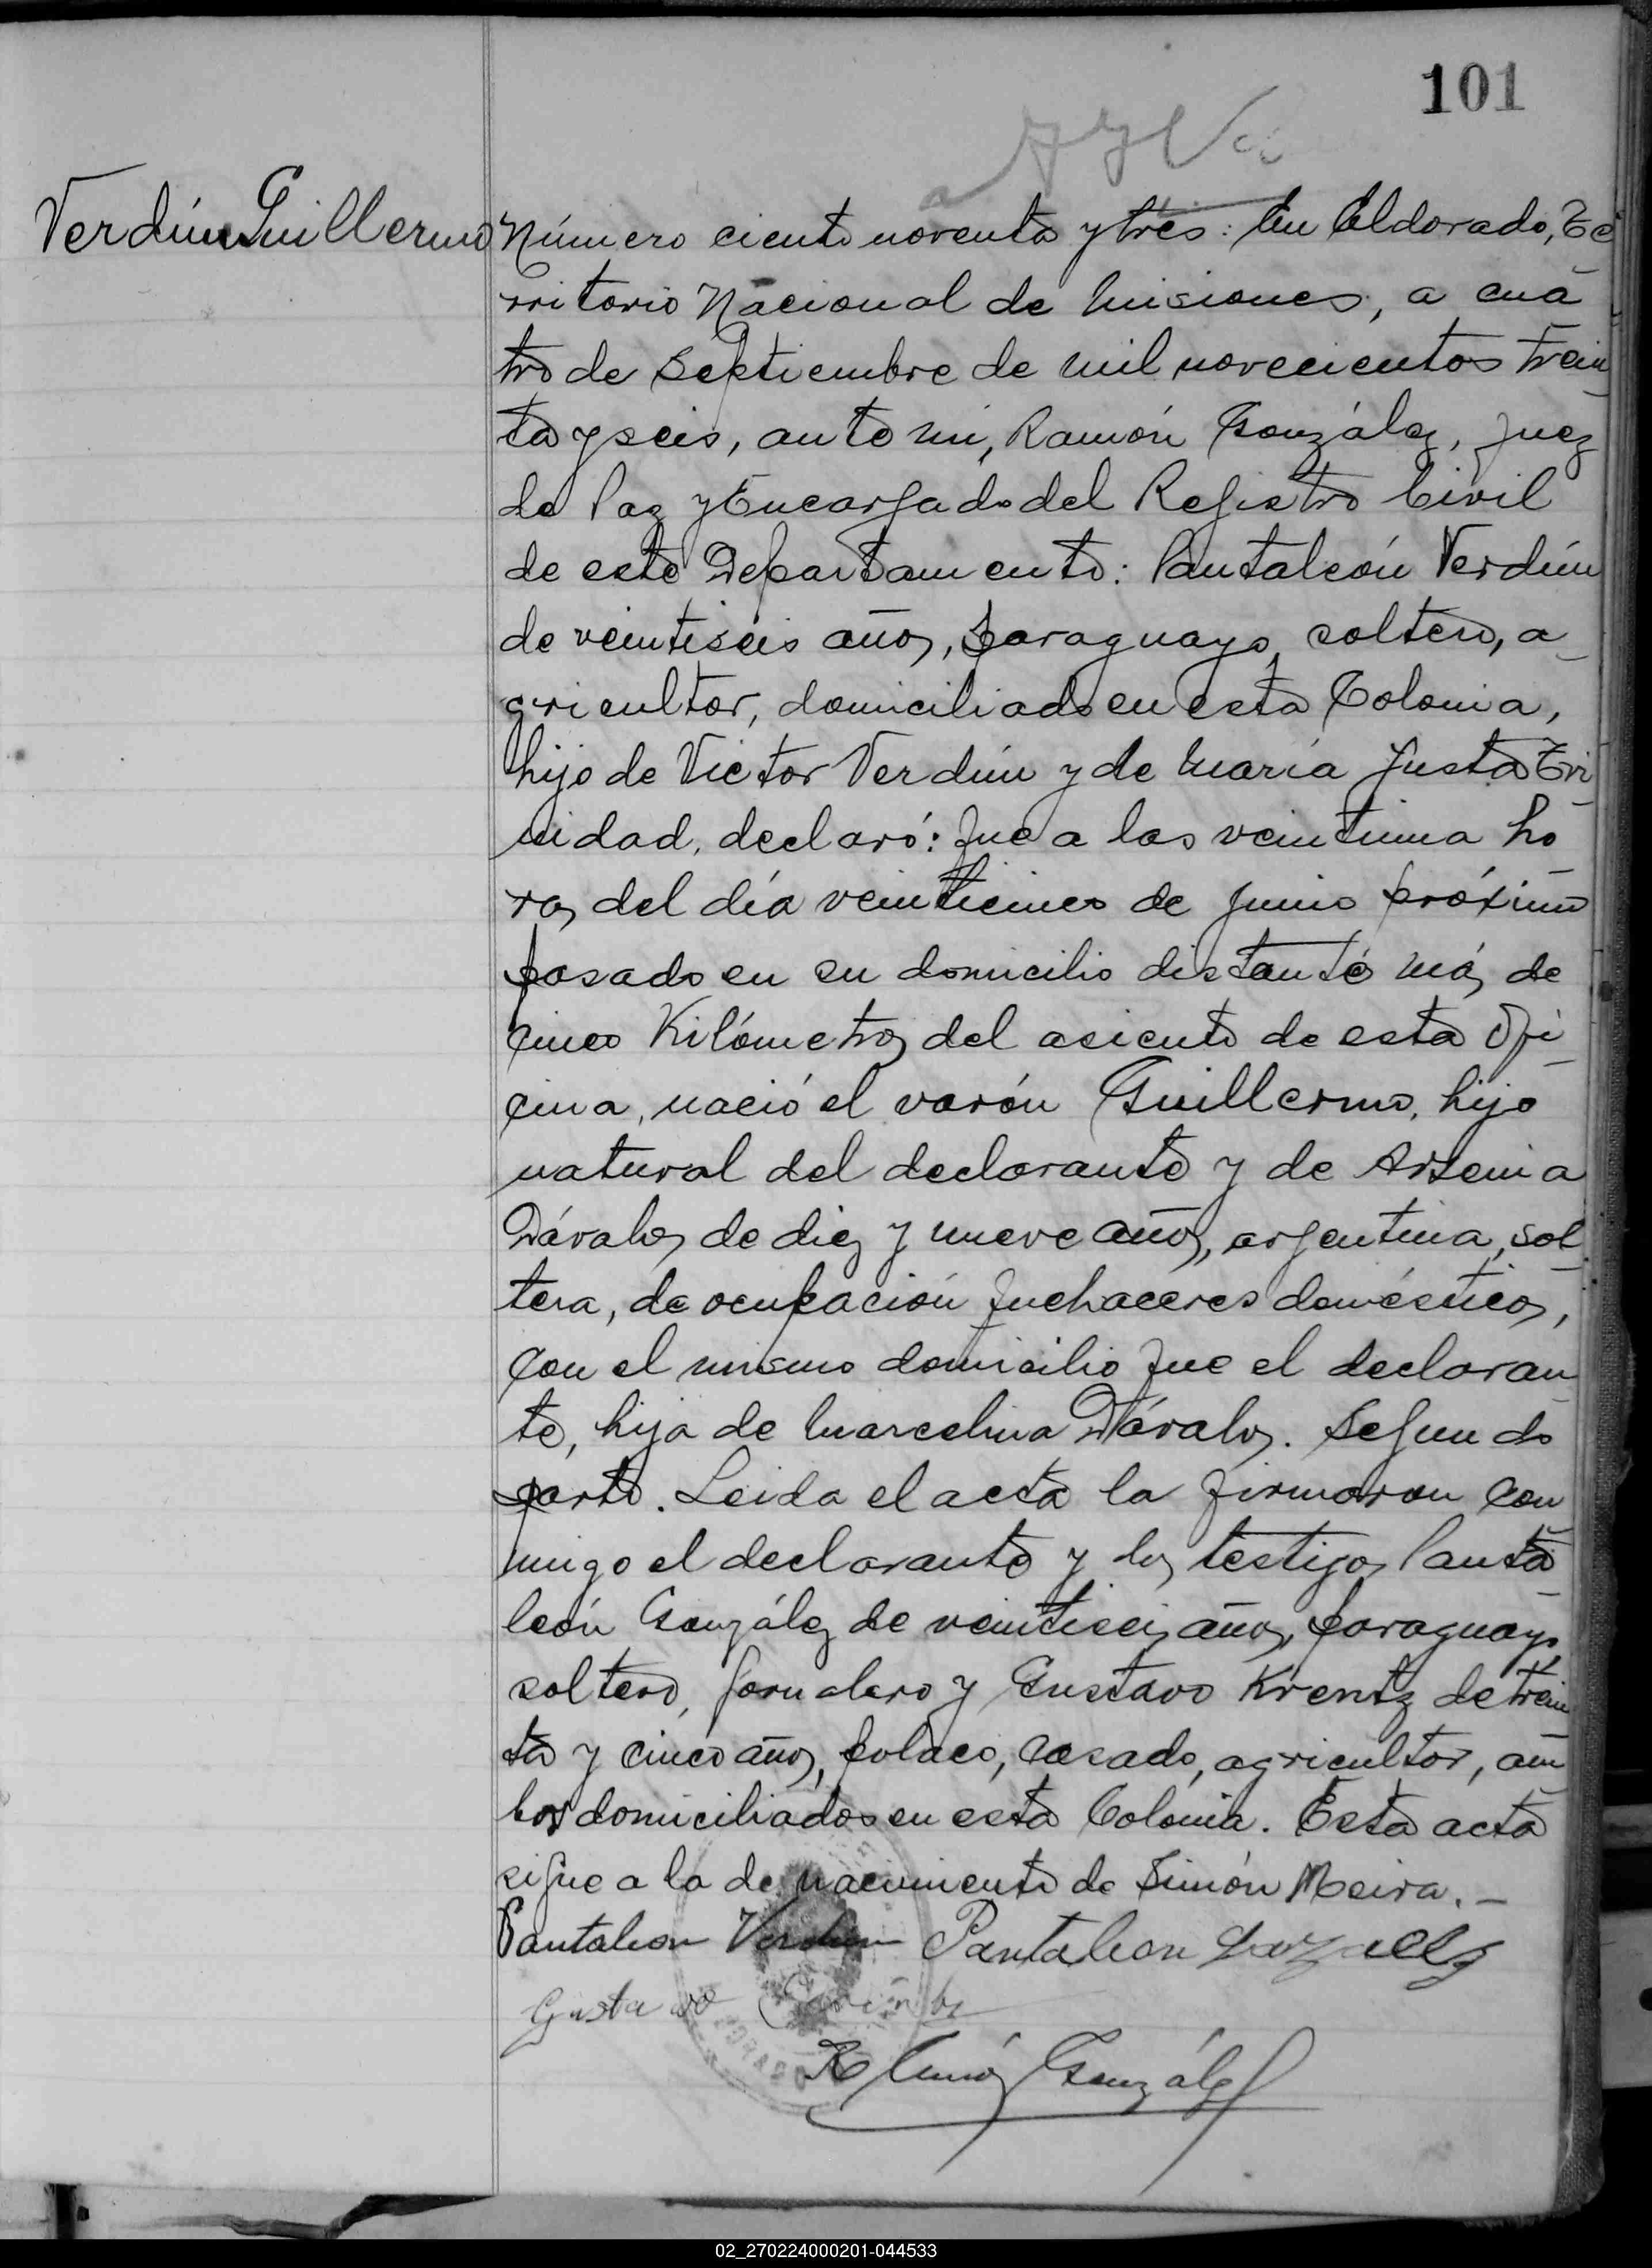 101
Verdún Guillermo
Número ciento noventa y tres: En Eldorado, Te
rritorio Nacional de Misiones, a cua
tro de Septiembre de mil novecientos trein
ta y seis, ante mí, Ramón González, Juez
de Paz y Encargado del Registro Civil
de este Departamento: Pantaleón Verdún
de veintiseis años, paraguayo, soltero, a
gricultor, domiciliado en esta Colonia,
hijo de Victor Verdún y de María Justa Tri
nidad, declaró: Que a las veintiuna ho
ras del día veinticinco de Junio próximo
pasado en su domicilio distante más de
cinco Kilómetros del asiento de esta Ofi
cina, nació el varón Guillermo, hijo
natural del declarante y de Arsenia
Dávalos de diez y nueve años, argentina, sol
tera, de ocupación quehaceres domésticos,
con el mismo domicilio que el declaran
te, hija de Marcelina Dávalos. Segundo
parto. Leida el acta la firmaron con
migo el declarante y los testigos Panta
león González de veintiseis años, paraguayo
soltero, jornalero y Gustavo Krentz de trein
ta y cinco años, polaco, casado, agricultor, am
bos domiciliados en esta Colonia. Esta acta
sigue a la de nacimiento de Simón Meira.-
Pantaleon Verdun Pantaleon Gonzalez
Gustavo
Ramón González
02_270224000201-044533